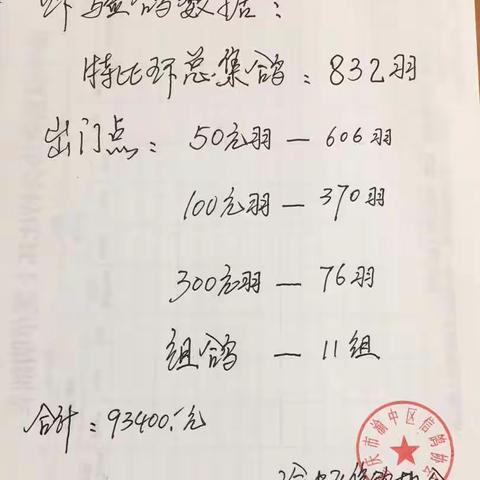 环验鸽数据：
特比环总集鸽：832羽
出门点：50元羽—606羽
100元羽—370羽
300元羽—76羽
组鸽—11组
合计：93400.元
庆市渝中区信鸽协会